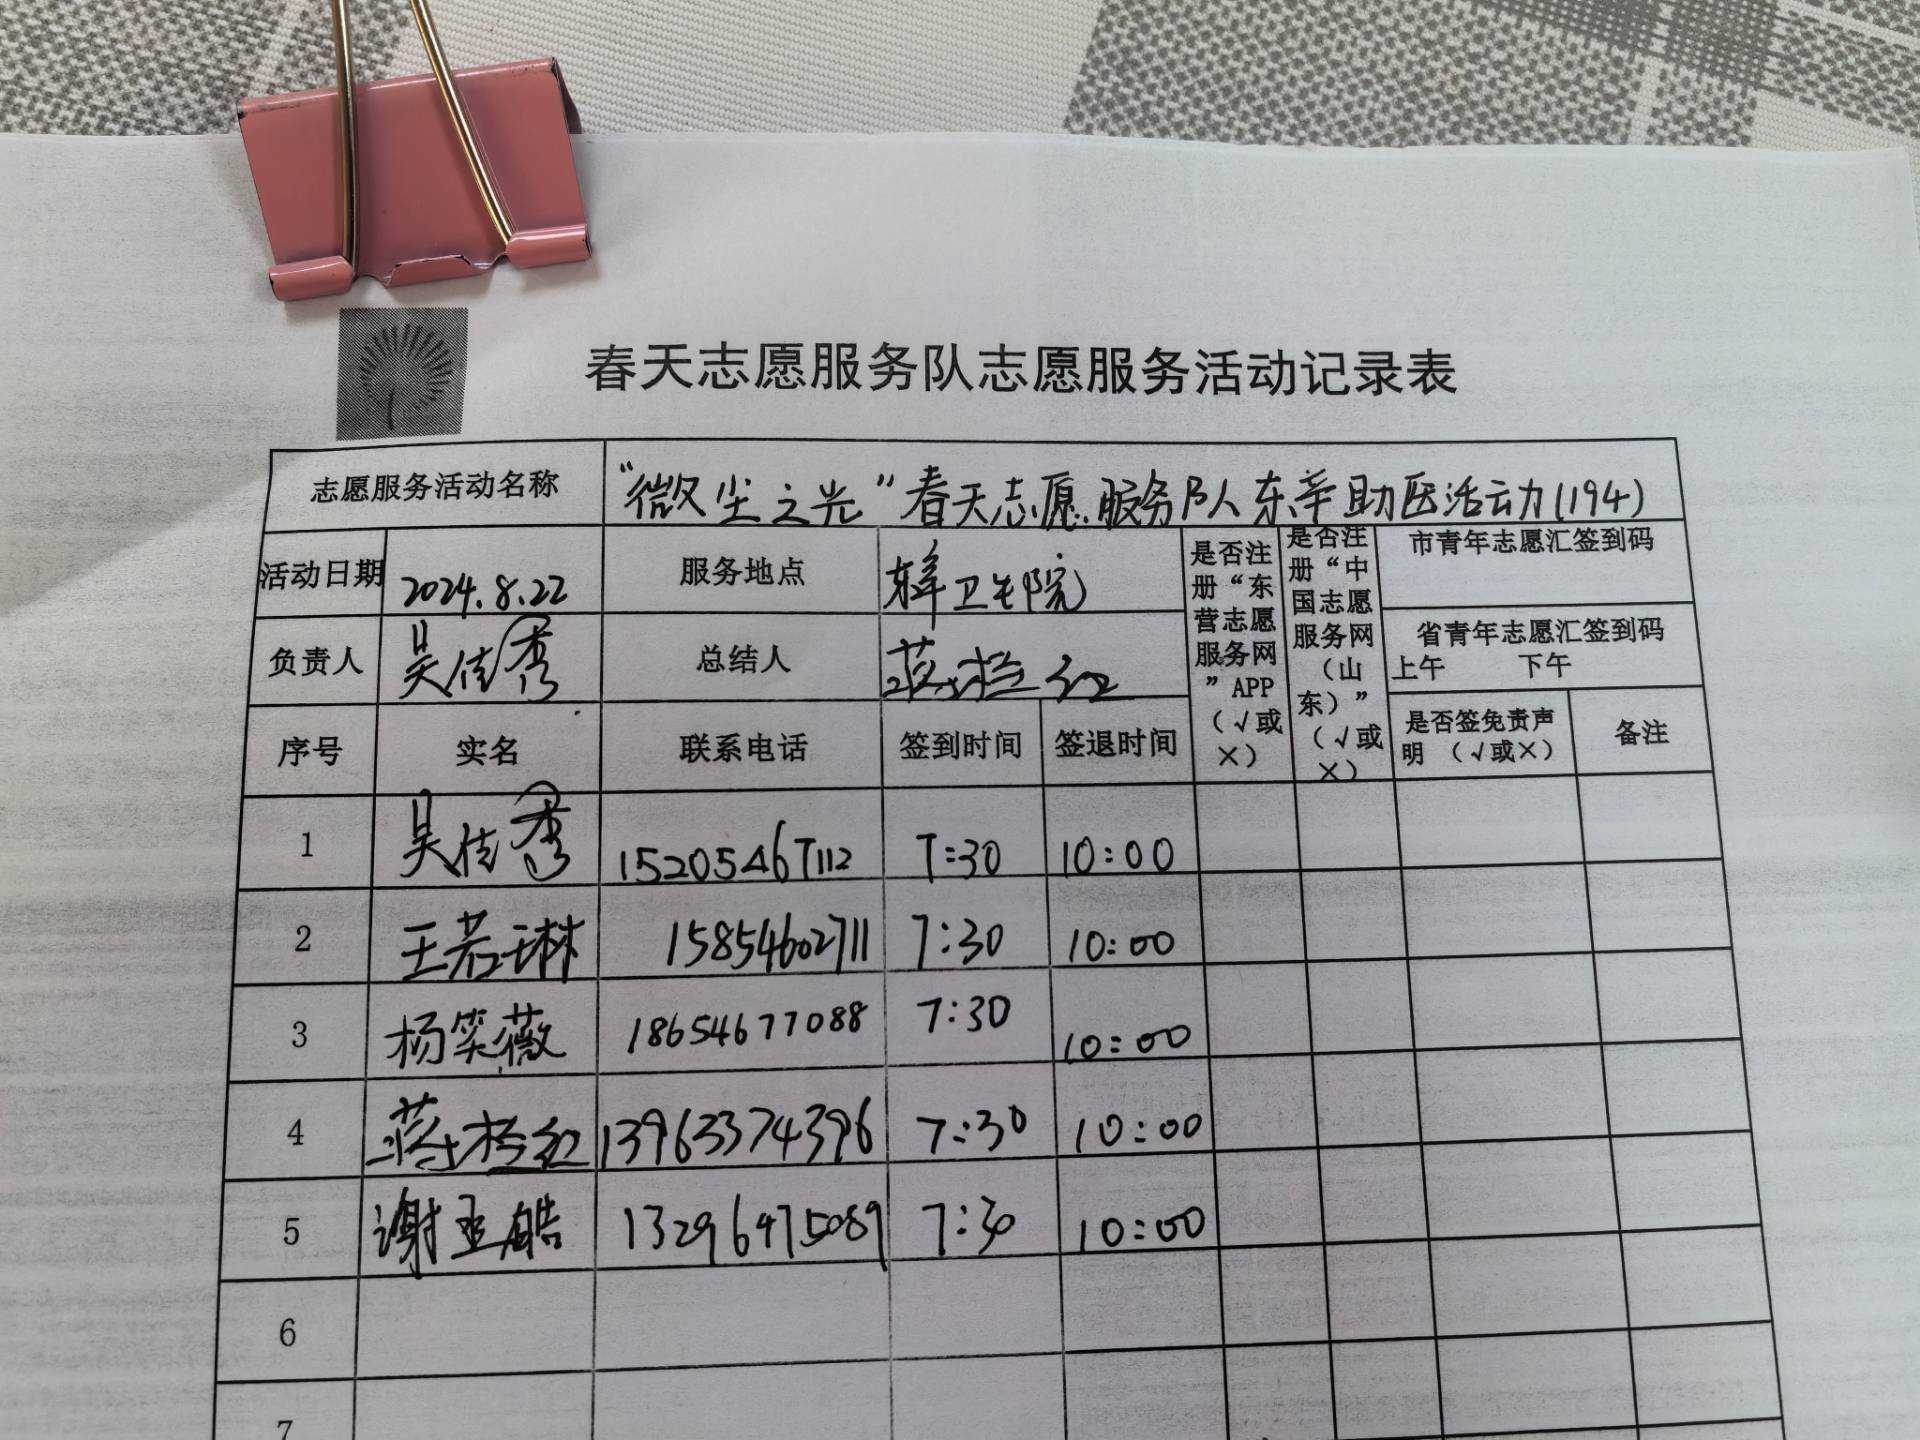 春天志愿服务队志愿服务活动记录表
志愿服务活动名称 “微尘之光”春天志愿服务队东辛助医活动(194)
活动日期 2024.8.22 服务地点 东辛卫生院
是否注册“东营志愿服务网”APP（√或×）
是否注册“中国志愿服务网（山东）”（√或×）
市青年志愿汇签到码
负责人 吴佳秀 总结人 蒋桂红
省青年志愿汇签到码
上午 下午
序号 实名 联系电话 签到时间 签退时间 是否签免责声明（√或×） 备注
1 吴佳秀 15205467112 7:30 10:00
2 王若琳 15854602711 7:30 10:00
3 杨笑薇 18654677088 7:30 10:00
4 蒋桂红 13963374396 7:30 10:00
5 谢亚皓 13296475089 7:30 10:00
6
7